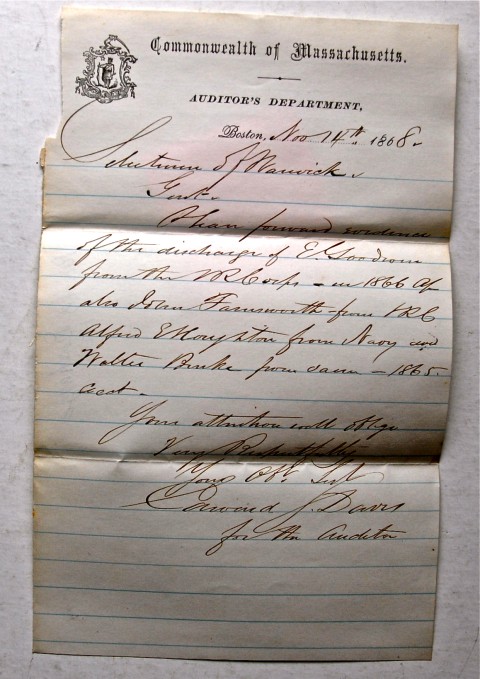 Commonwealth of Massachusetts.
AUDITOR'S DEPARTMENT,
Boston, Nov 14th. 1868.
Selectmen of Warwick.
Gent.
Please forward evidence
of the discharge of E Goodwin
from the VR Corps - in 1866 
also John Farnsworth from VRC
Alfred E Houghton from Navy and
Walter Burke from same - 1865.
acct.
Your attention will oblige
Very Respectfully
Your Obt. Svt
Edward J. Davis
for the Auditor